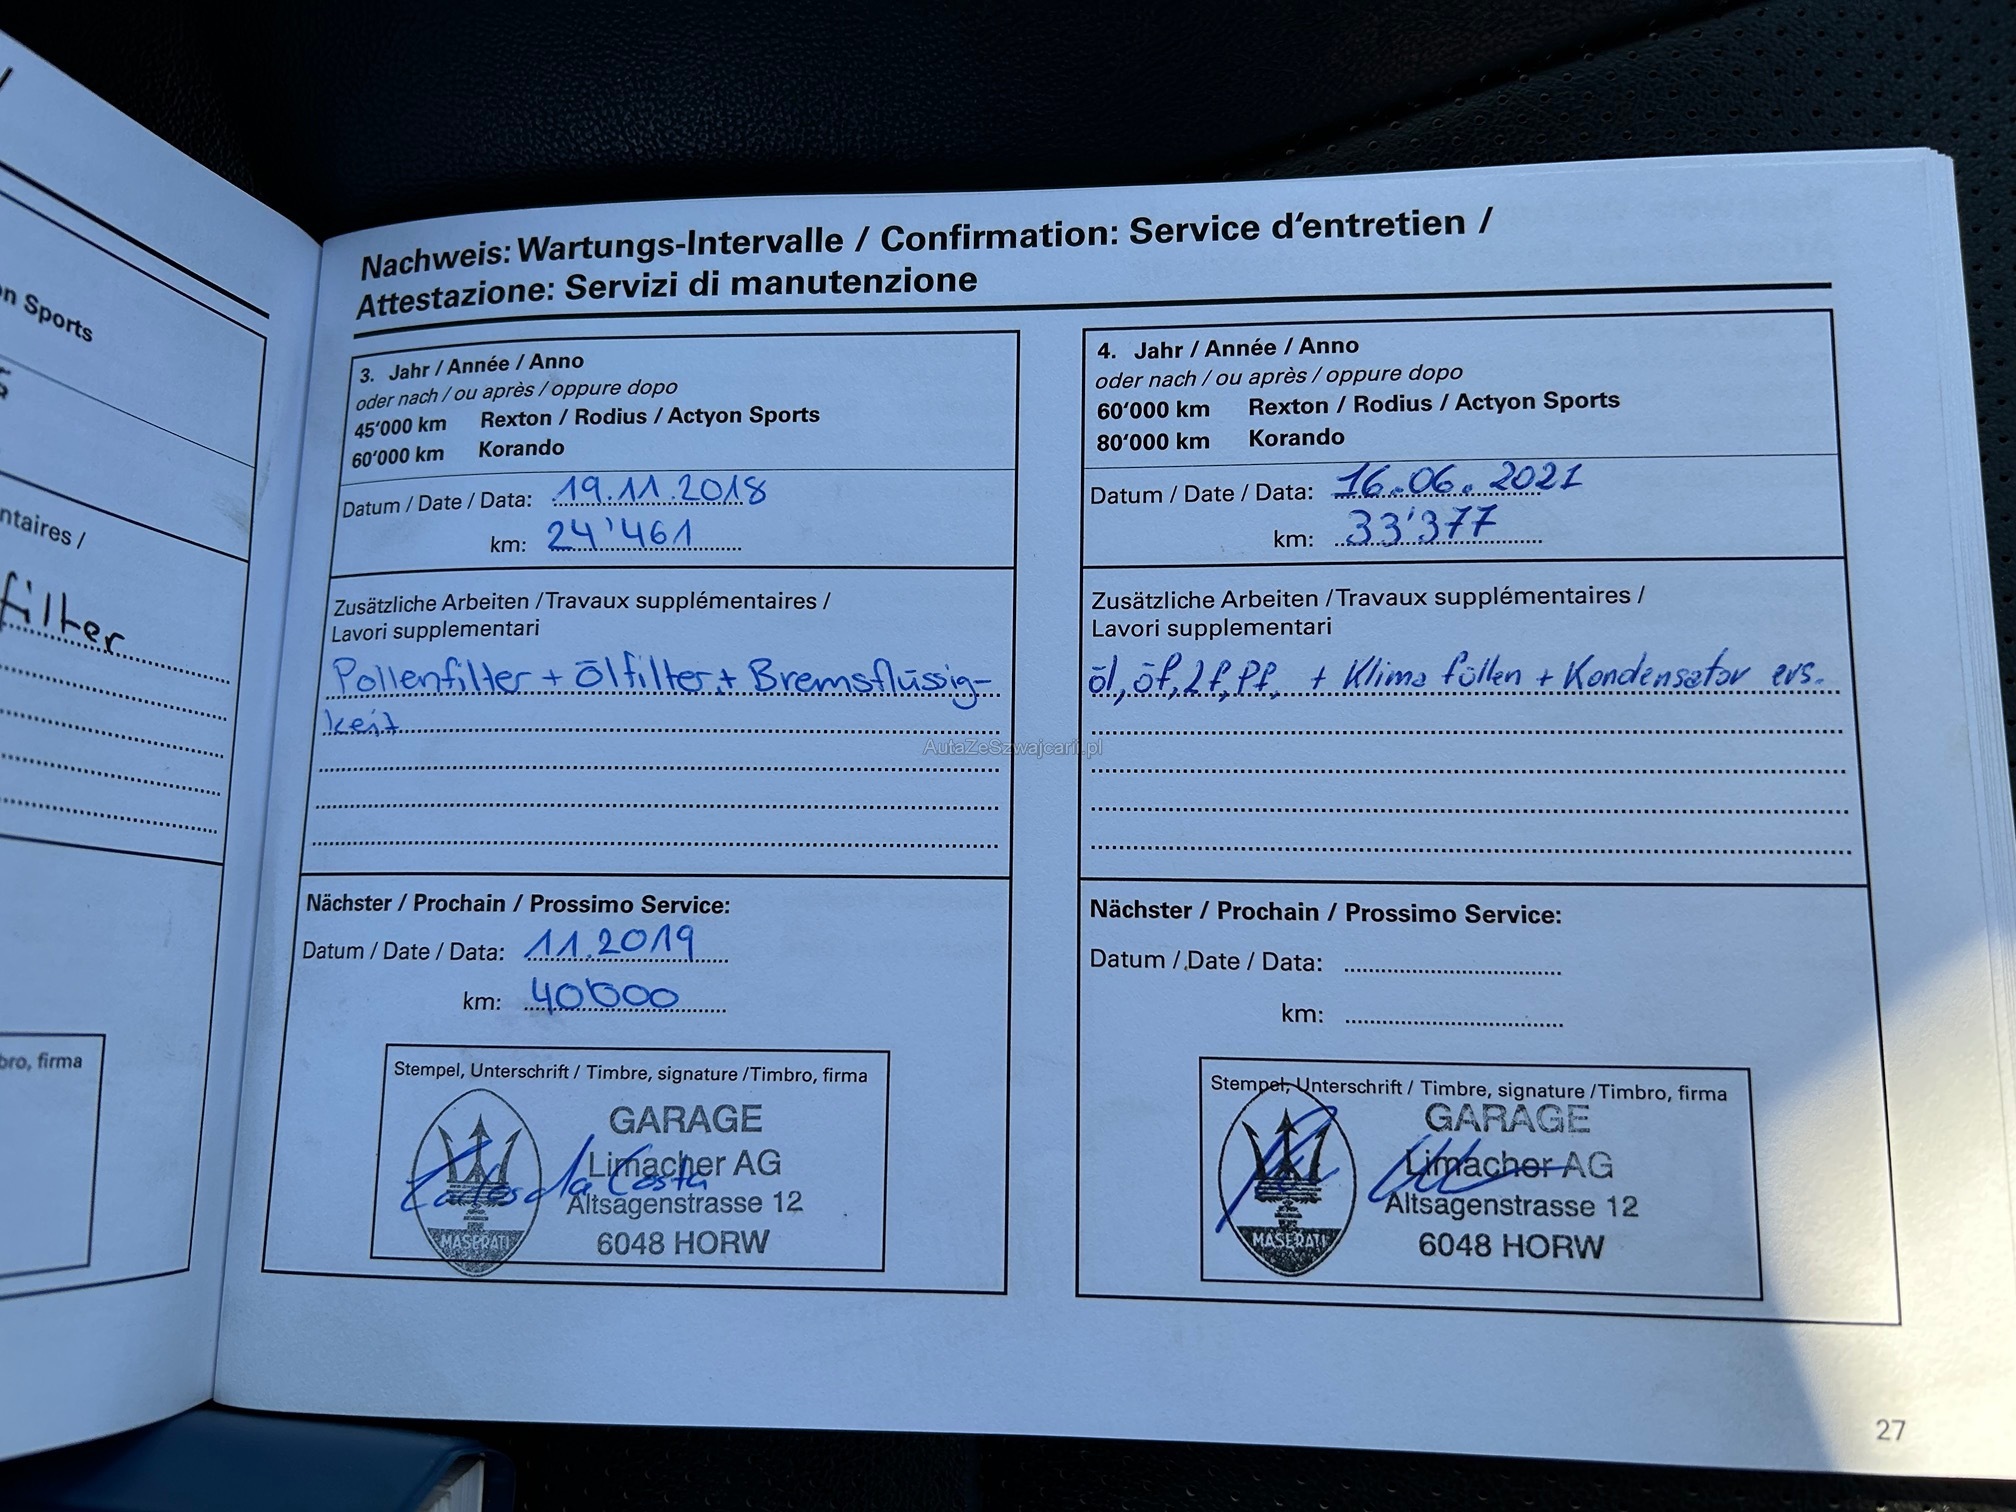 n Sports
ntaires /
filter
bro, firma
Nachweis: Wartungs-Intervalle / Confirmation: Service d'entretien /
Attestazione: Servizi di manutenzione
3. Jahr / Année / Anno
oder nach / ou après / oppure dopo
45'000 km Rexton / Rodius / Actyon Sports
60'000 km Korando
Datum / Date / Data: 19.11.2018
km: 24'461
Zusätzliche Arbeiten / Travaux supplémentaires /
Lavori supplementari
Pollenfilter + Ölfilter + Bremsflüssig-
keit
Nächster / Prochain / Prossimo Service:
Datum / Date / Data: 11.2019
km: 40'000
Stempel, Unterschrift / Timbre, signature / Timbro, firma
GARAGE
Limacher AG
Altsagenstrasse 12
6048 HORW
MASERATI
4. Jahr / Année / Anno
oder nach / ou après / oppure dopo
60'000 km Rexton / Rodius / Actyon Sports
80'000 km Korando
Datum / Date / Data: 16.06.2021
km: 33'377
Zusätzliche Arbeiten / Travaux supplémentaires /
Lavori supplementari
öl, öf, lf, Pf, + Klima füllen + Kondensator ers.
Nächster / Prochain / Prossimo Service:
Datum / Date / Data:
km:
Stempel, Unterschrift / Timbre, signature / Timbro, firma
GARAGE
Limacher AG
Altsagenstrasse 12
6048 HORW
MASERATI
AutaZeSzwajcarii.pl
27